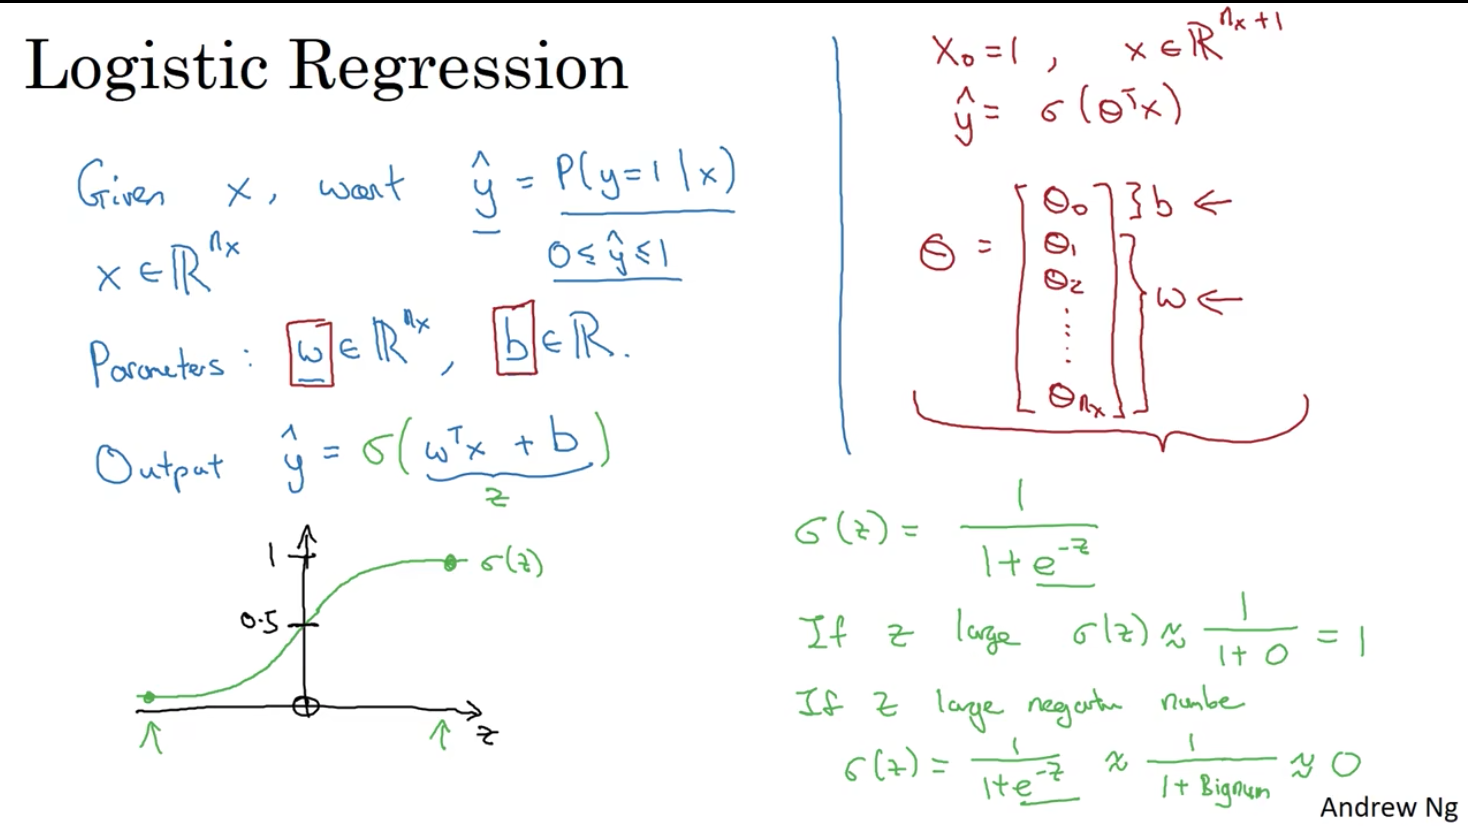 Logistic Regression
Given x, want ŷ = P(y=1 | x)
0 ≤ ŷ ≤ 1
x ∈ ℝ^{n_x}
Parameters: w ∈ ℝ^{n_x}, b ∈ ℝ.
Output ŷ = σ(w^T x + b)
z
1
σ(z)
0.5
z
x_0 = 1, x ∈ ℝ^{n_x + 1}
ŷ = σ(θ^T x)
θ = [θ_0 } b ←
θ_1
θ_2 } w ←
⋮
θ_{n_x}]
σ(z) = 1 / (1 + e^{-z})
If z large σ(z) ≈ 1 / (1 + 0) = 1
If z large negative number
σ(z) = 1 / (1 + e^{-z}) ≈ 1 / (1 + Bignum) ≈ 0
Andrew Ng